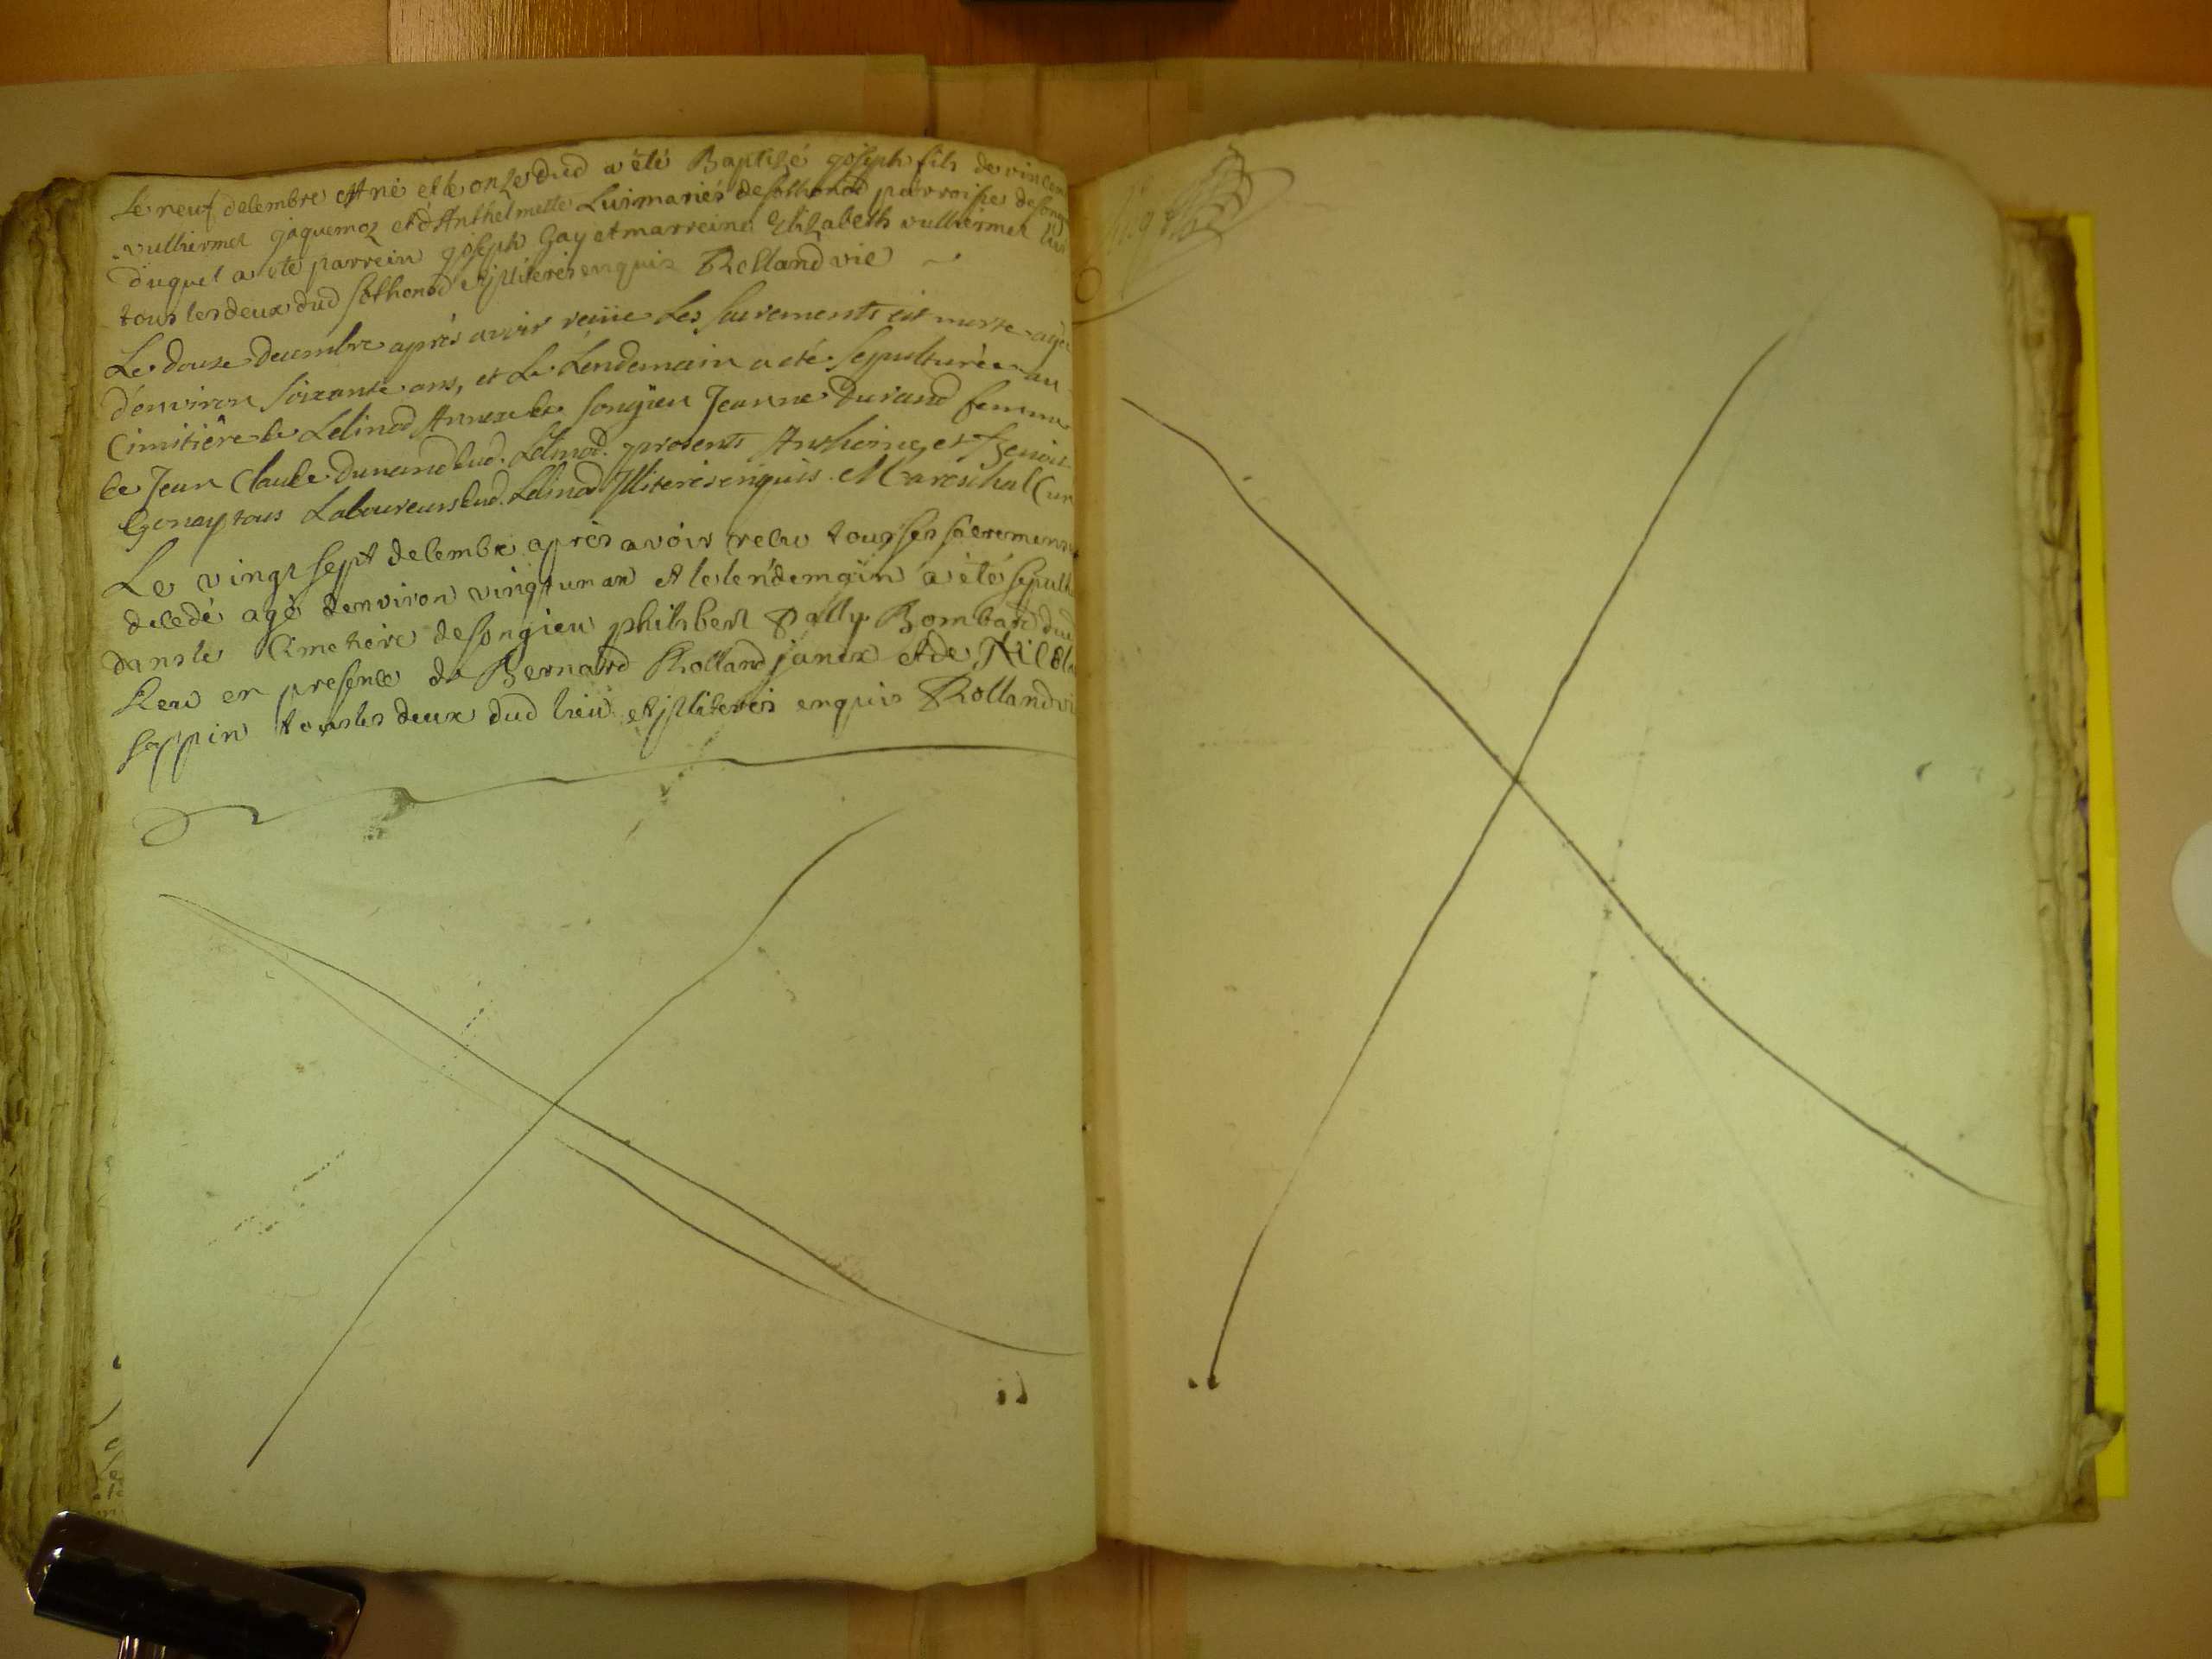 Le neuf decembre est né et le onze dud a été Baptizé joseph fils de vincen
vulliermet jaquemoz et d'Anthelmette Luimariés de sothonod parroisse de song
duquel a eté parrein joseph Gay et marreine Elizabeth vulliermet
tous les deux dud sothonod illiteres enquis Rolland vic
Le douze decembre apres avoir reçüe Les sacrements est morte agée
d'environ soixante ans, et Le Lendemain a eté sepulturée au
Cimitiére de Lelinod Annexe de songieu Jeanne Durand femme
de Jean Claude Dunand dud. Lelinod. presents Anthoine et Benoit
Genay tous Laboureurs dud. Lelinod Illiteres enquis. Mareschal Cur
Le vingt sept decembre apres avoir recu tous ses sacremens
decedé agé denviron vingt un an et le lendemain a été sepult
dans le Cimetiere de songieu philibert Pally Bombard dud
lieu en presence de Bernard Rolland janex et de Nicola
sappin tous les deux dud lieu et jlliteres enquis Rolland vi